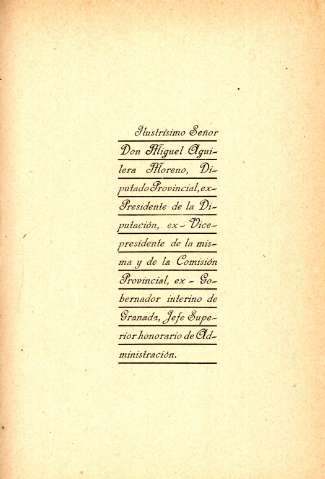 Ilustrísimo Señor
Don Miguel Agui-
lera Moreno, Di-
putado Provincial, ex-
Presidente de la Di-
putación, ex-Vice-
presidente de la mis-
ma y de la Comisión
Provincial, ex-Go-
bernador interino de
Granada, Jefe Supe-
rior honorario de Ad-
ministración.